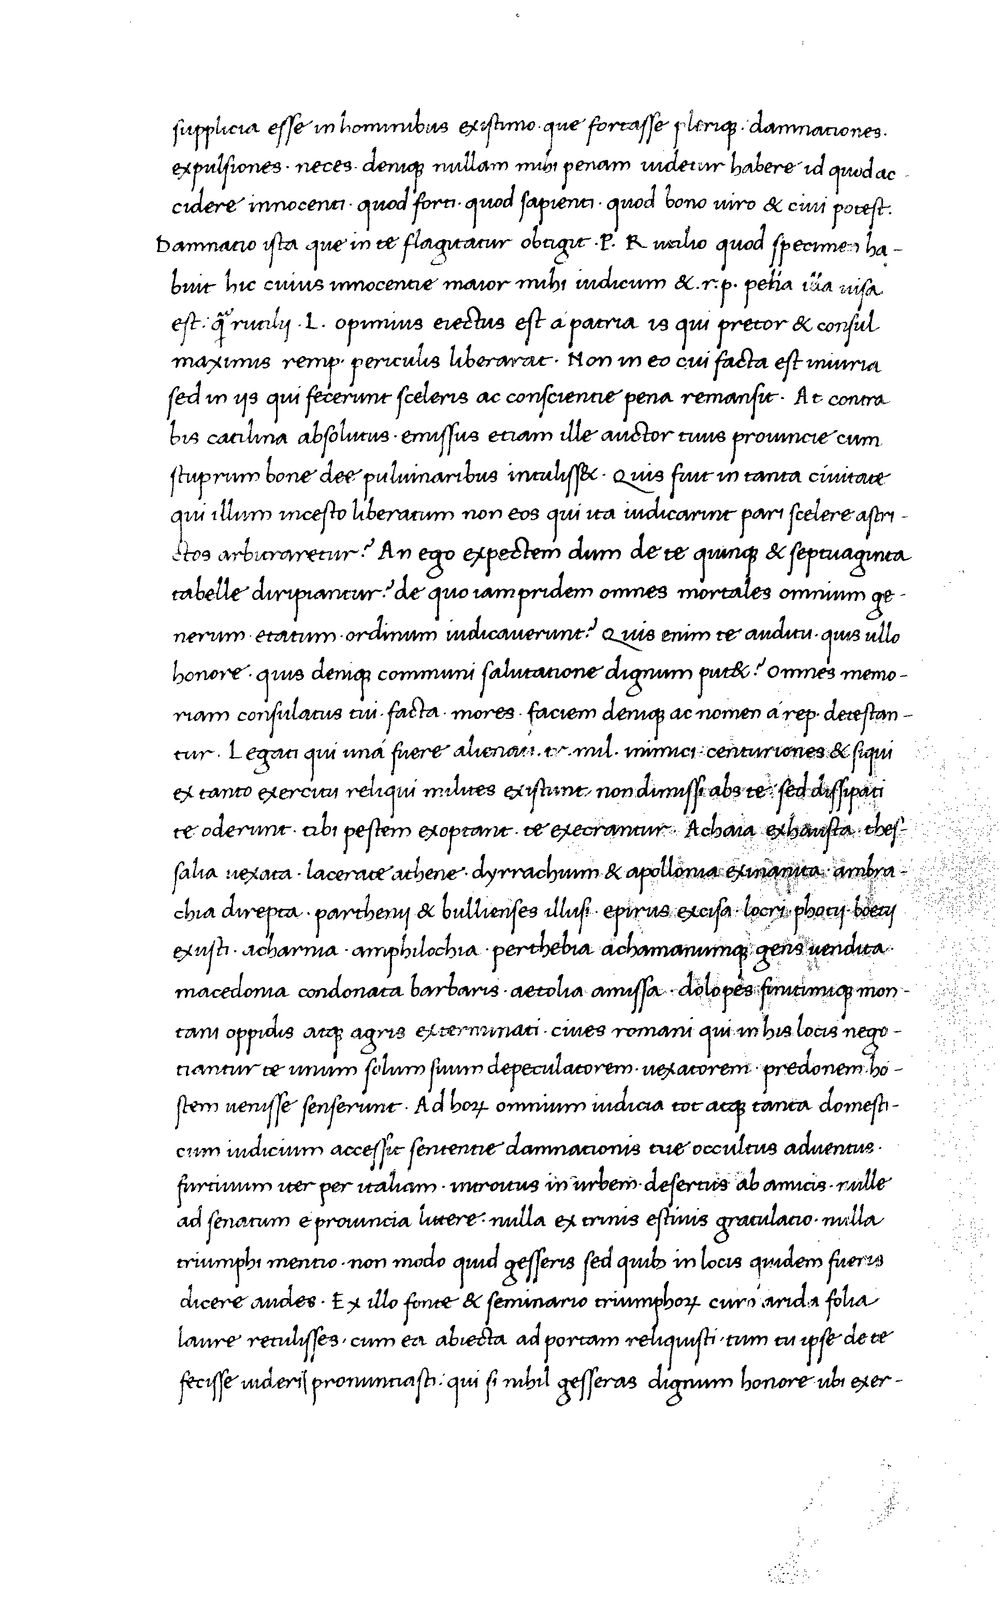 supplicia esse in hominibus existimo · que fortasse pleriq; · damnationes ·
expulsiones · neces · deniq; nullam mihi penam uidetur habere id quod ac
cidere innocenti · quod forti · quod sapienti · quod bono uiro & ciui potest ·
Damnatio ista que in te flagitatur obtigit · P · Rutilio quod specimen ha-
buit hic ciuius innocentie maior mihi iudicum & · r · p · illa uisa
est · rutilij · L · opimius eiectus est a patria is qui pretor & consul
maximis remp · periculis liberarat · Non in eo cui facta est iniuria
sed in ijs qui fecerunt sceleris ac conscientie pena remansit · At contra
bis catilina absolutus · emissus etiam ille auctor tuus prouincie cum
stuprum bone dee puluinaribus intuliss& · Quis fuit in tanta ciuitate
qui illum incesto liberatum non eos qui ita iudicarint pari scelere astri-
ctos arbitraretur? An ego expectem dum de te quinq; & septuaginta
tabelle diripiantur? de quo iam pridem omnes mortales omnium ge-
nerum · etatum · ordinum iudicauerunt? Quis enim te auditu · quis ullo
honore · quis deniq; communi salutatione dignum put&? Omnes memo-
riam consulatus tui · facta · mores · faciem deniq; ac nomen a rep · detestan-
tur · Legati qui una fuere alienati · tr · mil · inimici · centuriones & siqui
ex tanto exercitu reliqui milites existunt · non dimissi abs te · sed dissipati
te oderunt · tibi pestem exoptant · te execrantur · Achaia exhausta · thes-
salia uexata · lacerate athene · dyrrachium & apollonia exinanita · ambra-
chia direpta · parthenij & bullienses illusi · epirus excisa · locri · photij · boetij
exusti · acharnia · amphilochia · perthebia achamanumq; gens uendita ·
macedonia condonata barbaris · aetolia amissa · dolopes finitimiq; mon-
tani oppidis atq; agris exterminati · ciues romani qui in his locis nego-
tiantur te unum solum suum depeculatorem · uexatorem · predonem · ho-
stem uenisse senserunt · Ad hoꝝ omnium iudicia tot atq; tanta domesti-
cum iudicium accessit sententie damnationis tue occultus aduentus ·
furtiuum iter per italiam · introitus in urbem · desertus ab amicis · nulle
ad senatum e prouincia littere · nulla ex trinis estiuis gratulatio · nulla
triumphi mentio · non modo quid gesseris sed quib; in locis quidem fueris
dicere audes · Ex illo fonte & seminario triumphoꝝ cum arida folia
laure retulisses · cum ea abiecta ad portam reliquisti · tum tu ipse de te
fecisse uideri pronuntiasti · qui si nihil gesseras dignum honore ubi exer-